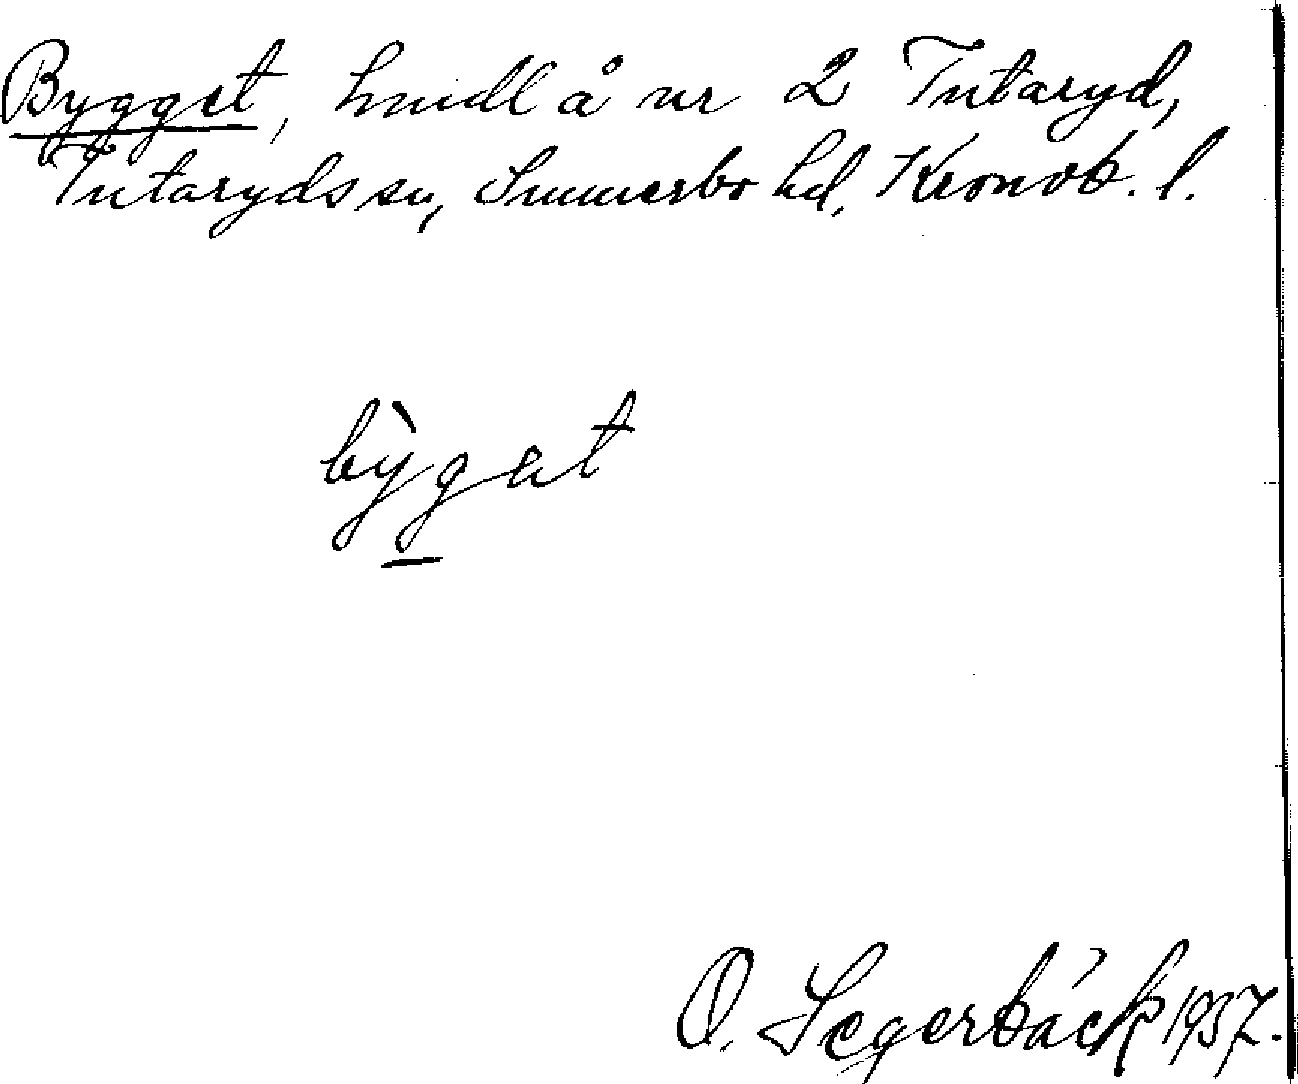 Bygget, hmdl å nr 2 Tutaryd,
Tutaryds sn, Sunnerbo hd, Kronob. l.
bỳgat
O. Segerbäck 1937.